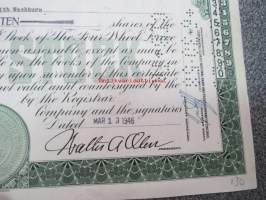 ith Washburn
TEN shares of the
Stock of The Four Wheel Drive
non assessable, except as may be
ble on the books of the company in
upon surrender of this certificate
not valid until countersigned by the
by the Registrar.
Company and the signatures
Dated MAR 13 1946
Walter A. Olen